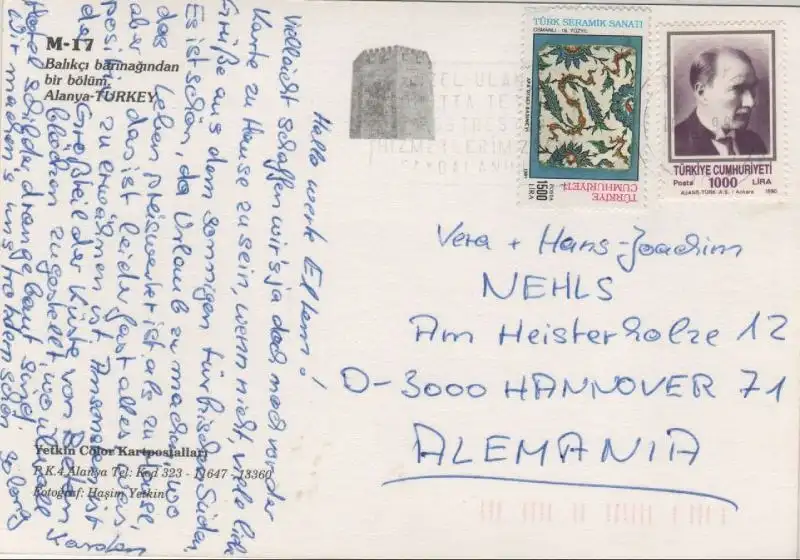 M-17
Balıkçı barınağından
bir bölüm,
Alanya-TURKEY
Hallo werte Eltern!
Vielleicht schaffen wir's ja doch noch vor der
Karte zu Hause zu sein, wenn nicht, viele liebe
Grüße aus dem sonnigen türkischen Süden.
Es ist schön, da Urlaub zu machen, wo
das Leben preiswerter ist als zu Hause,
aber das ist leider fast alles, was
positiv zu erwähnen ist. Ansonsten ist
Großteil der Küste von Beton
blöcken zugestellt, wo
Hotelschilder dran gebaut sind.
Wir machen's uns trotzdem schön, solang
Yetkin Color Kartpostalları
P.K.4 Alanya Tel: Kod 323 - 11647 - 13360
Fotoğraf: Haşim Yetkin
TÜRK SERAMİK SANATI
OSMANLI - 16. YÜZYIL
TÜRKİYE
CUMHURİYETİ
POSTA
1500
LİRA
TÜRKİYE CUMHURİYETİ
Posta 1000 LİRA
AJANS-TÜRK A.Ş. / Ankara 1990
Vera + Hans-Joachim
NEHLS
Am Heisterholze 12
D-3000 HANNOVER 71
ALEMANIA